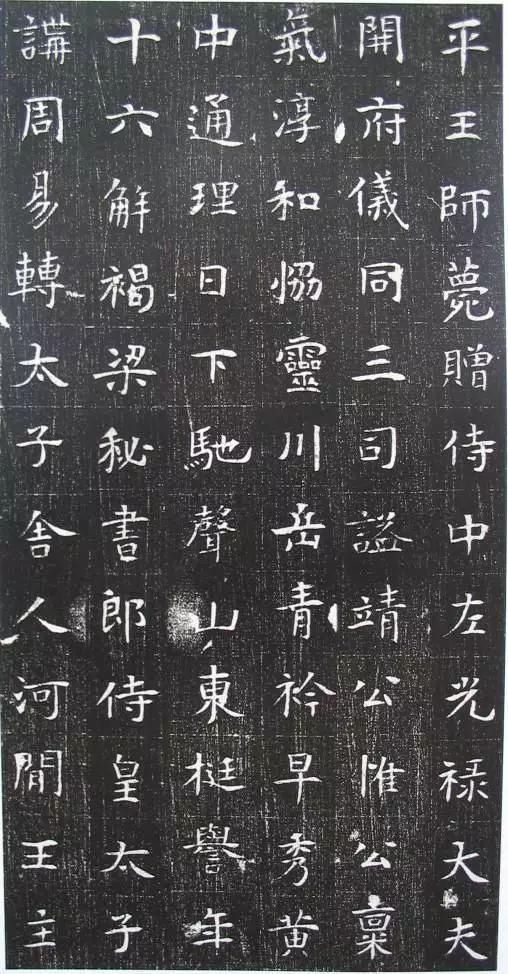 平王師薨贈侍中左光禄大夫
開府儀同三司謚靖公惟公稟
氣淳和恊靈川岳青衿早秀黄
中通理日下馳聲山東挺譽年
十六解褐梁秘書郎侍皇太子
講周易轉太子舍人河閒王主